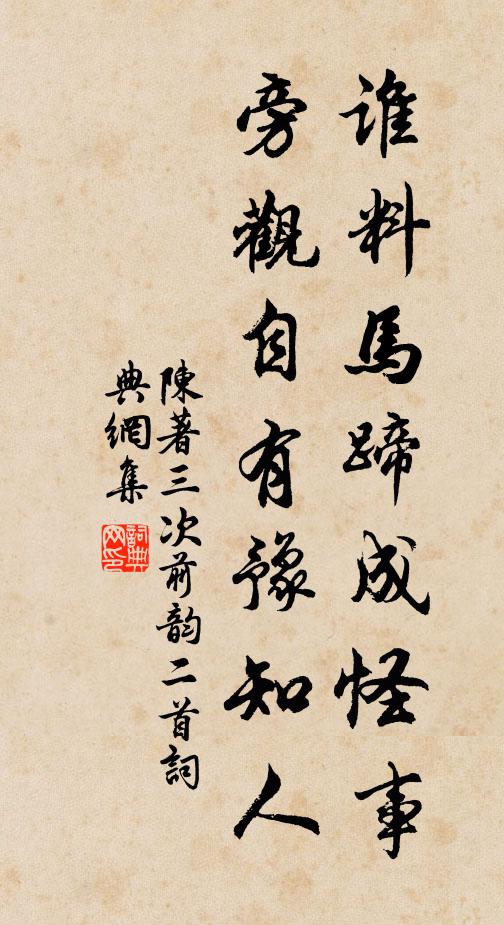 誰料馬蹄成怪事
旁觀自有豫知人
陳著三次前韵二首詞
典網集
詞典網印